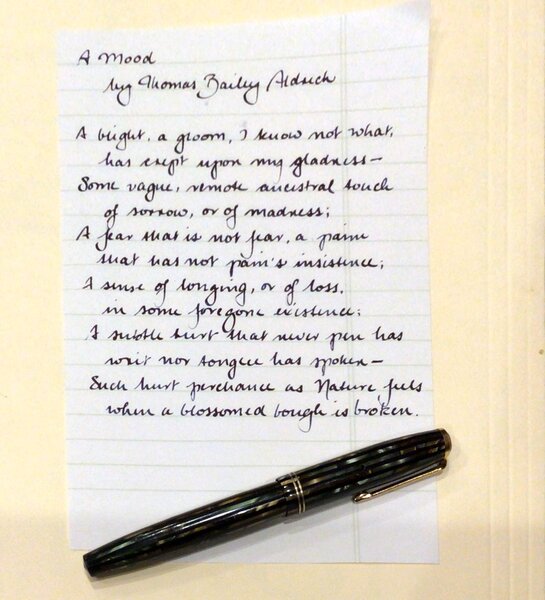 A Mood
by Thomas Bailey Aldrich
A blight, a gloom, I know not what,
has crept upon my gladness—
Some vague, remote ancestral touch
of sorrow, or of madness;
A fear that is not fear, a pain
that has not pain's insistence;
A sense of longing, or of loss,
in some foregone existence;
A subtle hurt that never pen has
writ nor tongue has spoken—
Such hurt perchance as Nature feels
when a blossomed bough is broken.